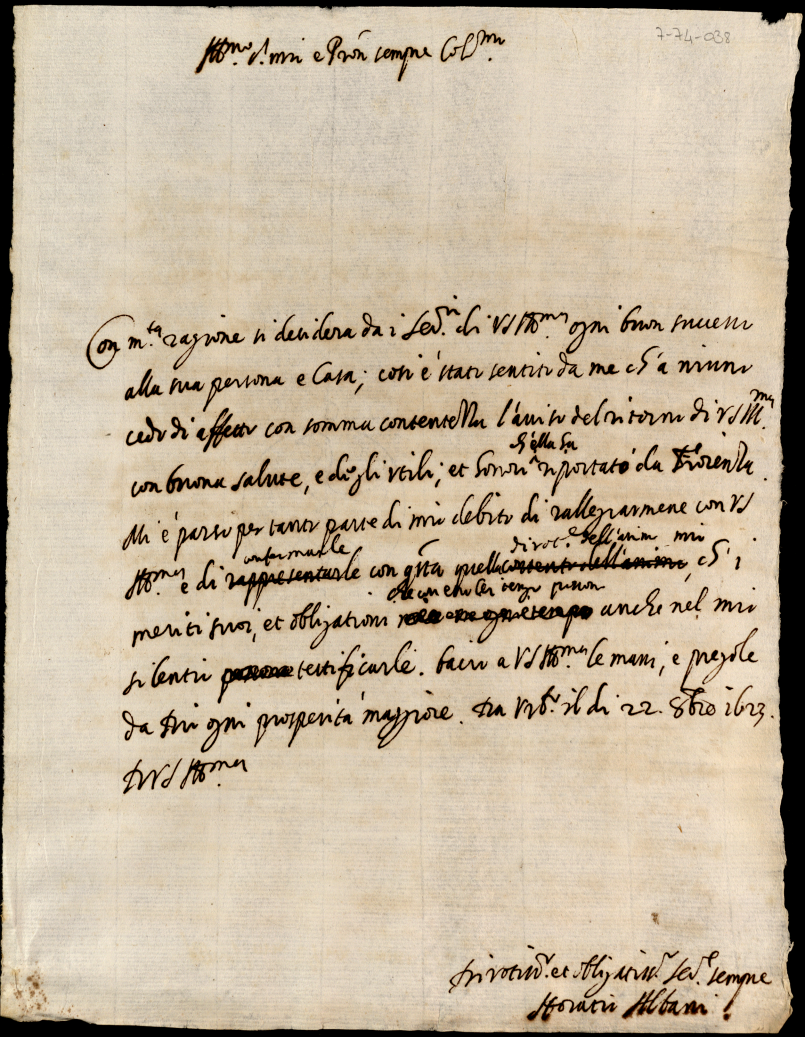 7-74-038
Ill.mo S.r mio e Pron sempre Col.mo
Con m.ta ragione si desidera da i Ser.ri di VS Ill.ma ogni buon successo
alla sua persona e Casa; così è stato sentito da me ch'a niuno
cedo di affetto con somma contentezza l'aviso del ritorno di VS Ill.ma
ch'ella ha
con buona salute, e degli utili, et honori riportato da Fiorenza.
Mi è parso per tanto parte di mio debito di rallegrarmene con VS
confermarle divot.e dell'animo mio
Ill.ma e di rappresentarle con q.sta quella contento dell'animo, ch'i
meriti suoi, et obligationi anche nel mio
silentio testificarle. bacio a VS Ill.ma le mani, e pregole
da Dio ogni prosperità maggiore. Da Urb.o il di 22. 8bre 1623.
Di VS Ill.ma
Divotiss.o et obligatiss.o Ser.re sempre
Horatio Albani